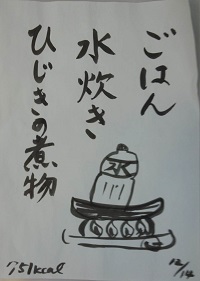 ごはん
水炊き
ひじきの煮物
水
751kcal
12/14